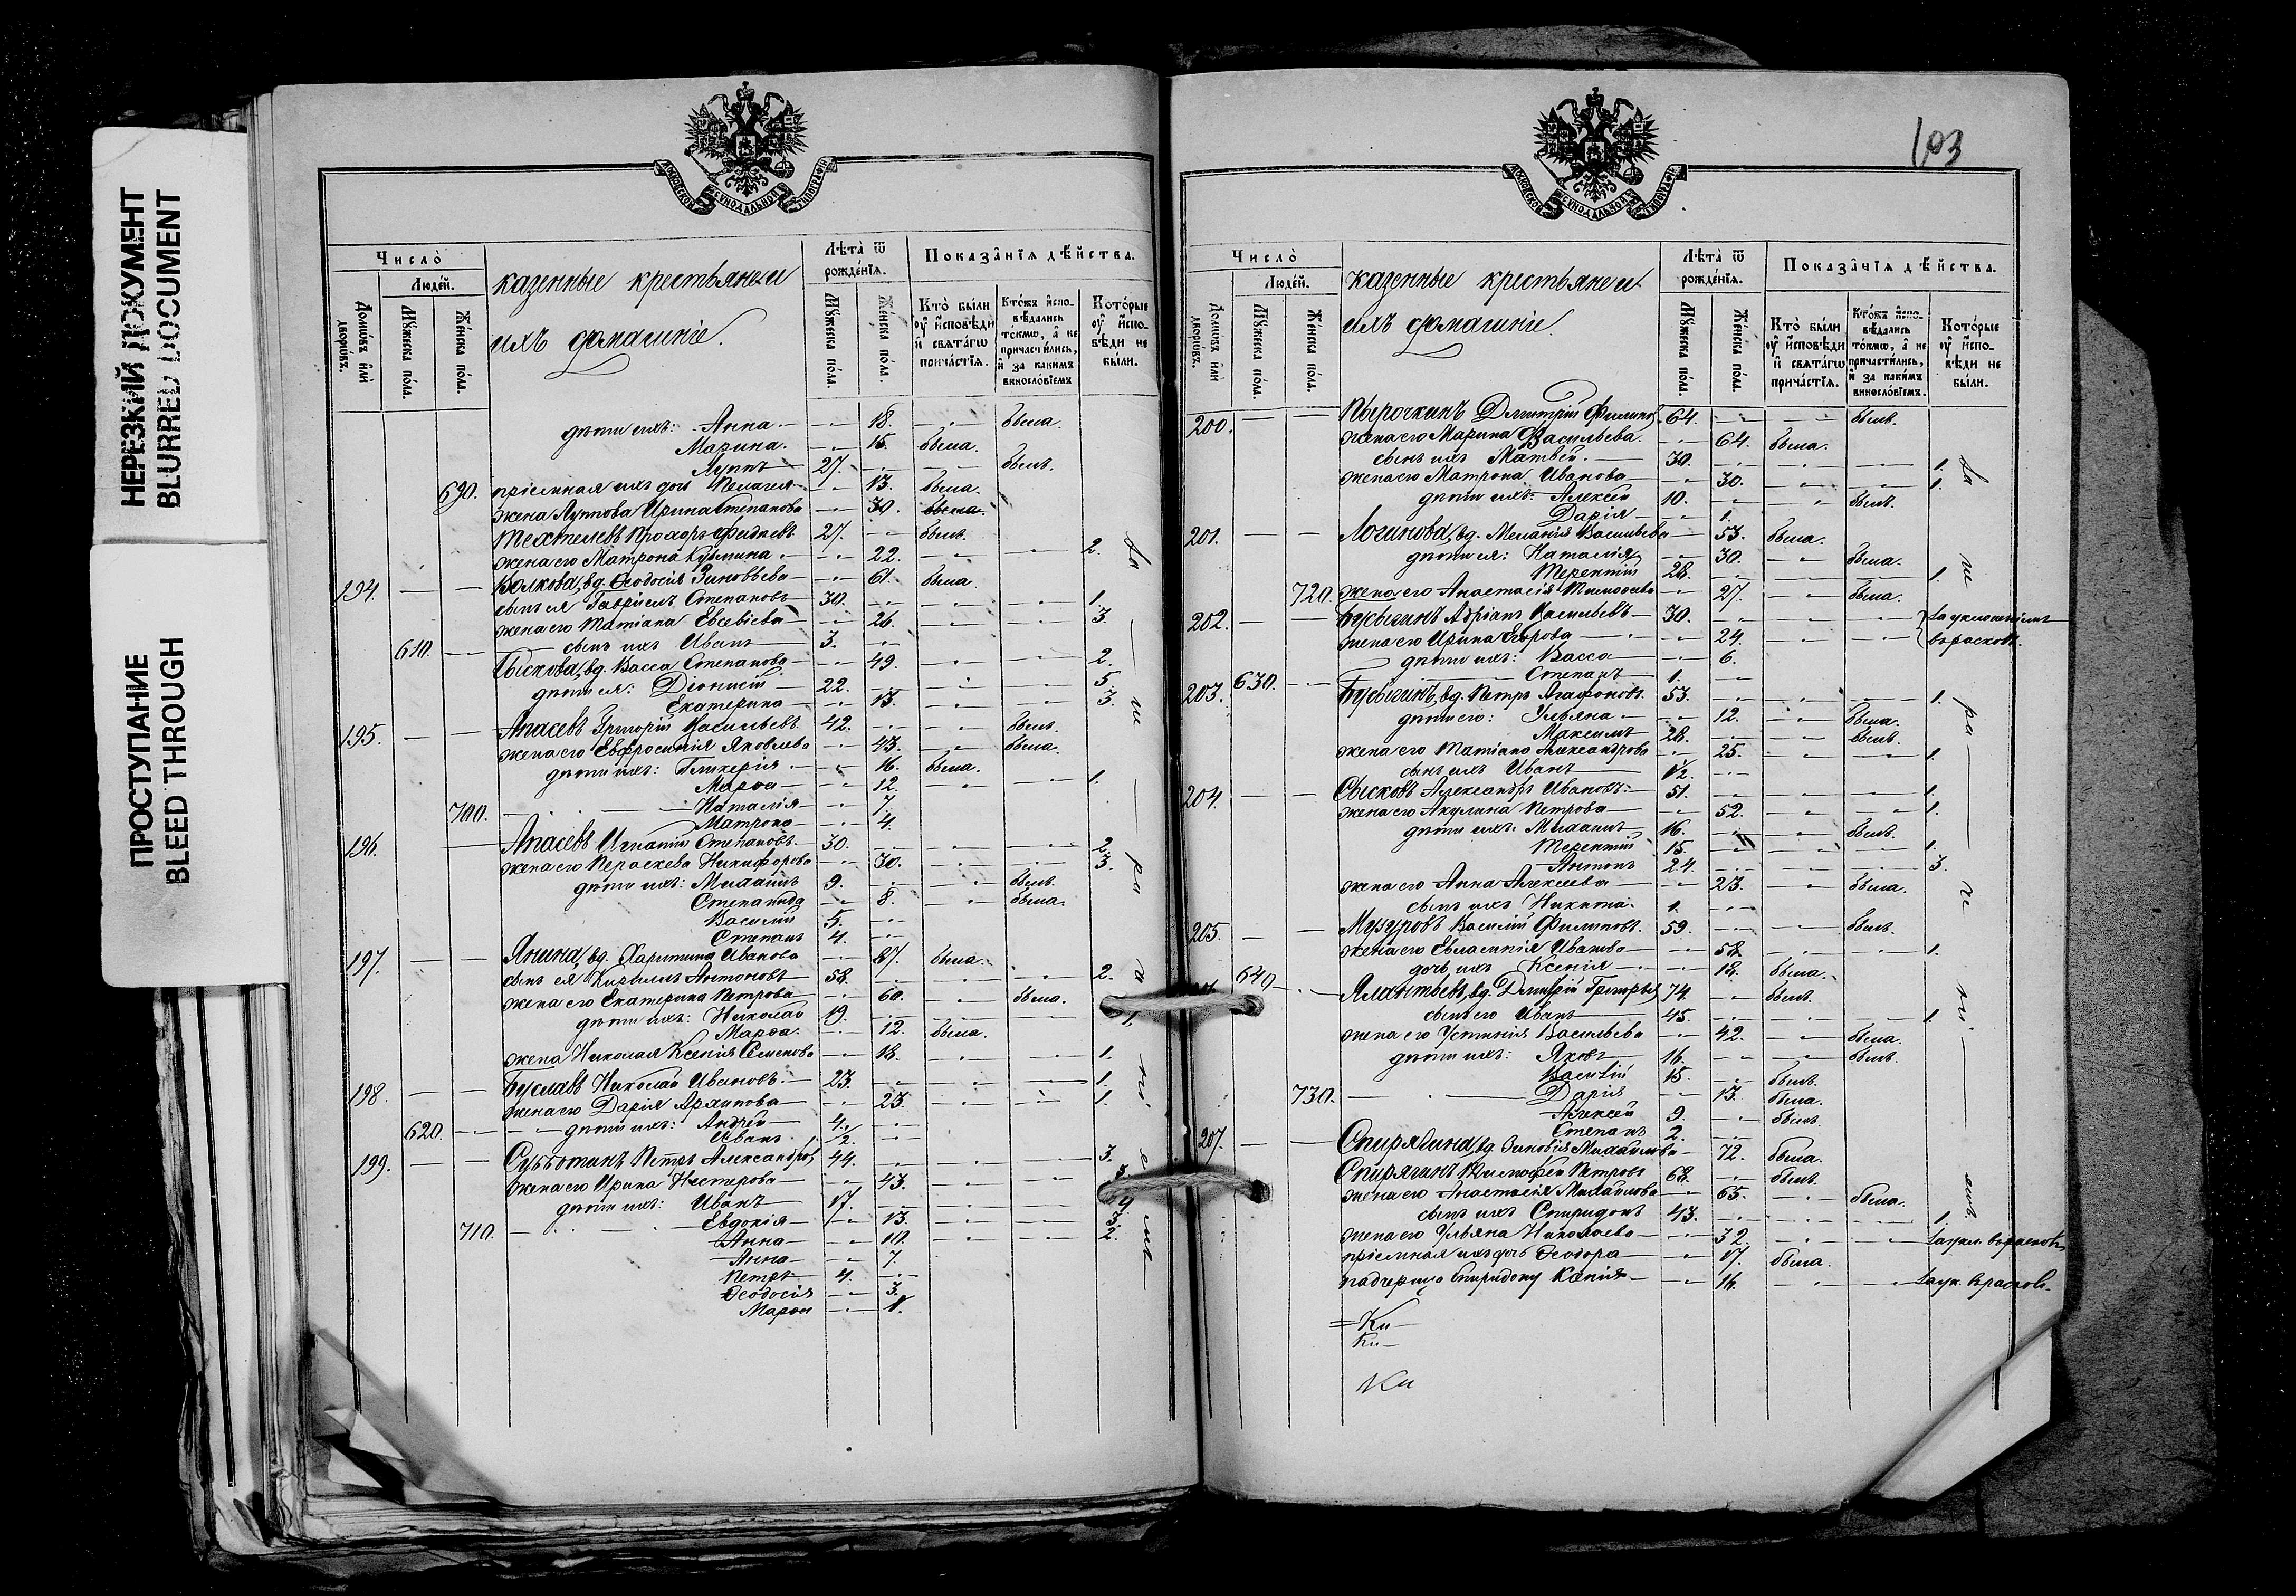 НЕРЕЗКИЙ ДОКУМЕНТ
BLURRED DOCUMENT
ПРОСТУПАНИЕ
BLEED THROUGH
МОСКОВСКОЙ СѴНОДАЛЬНОЙ ТИПОГРАФІИ
Число̀
Люде́й.
Домѡ́въ и҆лѝ дворѡ́въ.
Мꙋ́жеска по́ла.
Же́нска по́ла.
казенные крестьяне и
ихъ домашніе.
Лѣ́та ѿ рожде́нїѧ.
Мꙋ́жеска по́ла.
Же́нска по́ла.
Показа̑нїѧ дѣ́йства.
Кто̀ бы́ли ᲂу҆ и҆сповѣ́ди и҆ свѧта́гѡ прича́стїѧ.
Кто́жъ и҆спо-вѣ́дались то́кмѡ, а҆ не причасти́лись, и҆ за каки́мъ винослові́емъ
Кото́рые ᲂу҆ и҆спо-вѣ́ди не бы́ли.
дѣти ихъ: Анна — 18. — была.
Марина. — 15. была.
Луппъ — 27. — — былъ.
690. пріемная ихъ дочь Пелагея — 13. была.
жена Луппова Ирина Степанова — 30. была.
Прохоръ 27. — былъ.
жена его Матрона Кузмина — 22. — — 2.
194. — — Волкова, вд. Ѳеодосія Зиновьева — 61. была.
сынъ ея Гавріилъ Степановъ — 30. — — — 1.
жена его Татіана Евсевіева — 26. — — 3.
610. — сынъ ихъ Иванъ — 3. —
Сыскова, вд. Васса Степанова — 49. — — 2.
дѣти ея: Діонисій — 22. — — — 5.
Екатерина — 13. — — 3.
195. — — Апасевъ Григорій Васильевъ 42. — — былъ.
жена его Евфросинія Яковлева — 43. — была.
дѣти ихъ: Гликерія — 16. была.
Марѳа — 12. — — 1.
700. — Наталія — 7.
Матрона — 4.
196. — Апасевъ Игнатій Степановъ 30. — — — 2.
жена его Параскева Никифорова — 30. — — 3.
дѣти ихъ: Михаилъ 9. — — былъ.
Степанида — 8. — была.
Василій 5. —
Степанъ 4. —
197. — — Янина, вд. Харитина Иванова — 87. была.
сынъ ея Кириллъ Антоновъ — 58. — — — 2.
жена его Екатерина Петрова — 60. — была.
дѣти ихъ: Николай 19. — — — 1.
Марѳа. — 12. была.
жена Николая Ксенія Семенова — 18. — — 1.
198. — — Буслаевъ Николай Ивановъ. — 23. — — — 1.
жена его Дарія Архипова — 23. — — 1.
620. — дѣти ихъ: Андрей — 4. —
Иванъ ½. —
199. — — Субботинъ Петръ Александровъ 44. — — — 3.
жена его Ирина Нестерова — 43. — — 3.
дѣти ихъ: Иванъ 17. — — — 4.
710. — Евдокія — 13. — — 3.
Анна — 10. — — 2.
Анна — 7.
Петръ — 4. —
Ѳеодосія — 3.
Марѳа — 1.
за — не — ра — че — ні — е мъ
103
МОСКОВСКОЙ СѴНОДАЛЬНОЙ ТИПОГРАФІИ
Число̀
Люде́й.
Домѡ́въ и҆лѝ дворѡ́въ.
Мꙋ́жеска по́ла.
Же́нска по́ла.
казенные крестьяне и
ихъ домашніе.
Лѣ́та ѿ рожде́нїѧ.
Мꙋ́жеска по́ла.
Же́нска по́ла.
Показа̑нїѧ дѣ́йства.
Кто̀ бы́ли ᲂу҆ и҆сповѣ́ди и҆ свѧта́гѡ прича́стїѧ.
Кто́жъ и҆спо-вѣ́дались то́кмѡ, а҆ не причасти́лись, и҆ за каки́мъ винослові́емъ.
Кото́рые ᲂу҆ и҆спо-вѣ́ди не бы́ли.
200. — — Пырочкинъ Дмитрій Филиповъ 64. — — былъ.
жена его Марина Васильева. — 64. была.
сынъ ихъ Матвей. — 30. — — — 1.
жена его Матрона Иванова — 30. — — 1.
дѣти ихъ: Алексей 10. — — былъ.
Дарія — 1.
201. — — Логинова, вд. Меланія Васильева — 53. была.
дѣти ея: Наталія — 30. — была.
Терентій 28. — — — 1.
720. жена его Анастасія Тимоѳеева — 27. — была.
202. — — Бусыгинъ Адріанъ Васильевъ — 30. — — — за уклоненіемъ
жена его Ирина Егорова — 24. — — въ расколъ.
дѣти ихъ: Васса — 6.
630. — Степанъ — 1. —
203. Бусыгинъ, вд. Петръ Агафоновъ. 53. — — — 1.
дѣти его: Ульяна — 12. — была.
Максимъ 28. — — былъ.
жена его Татіана Александрова — 25. — — 1.
сынъ ихъ Иванъ — ½. —
204. — — Сысковъ Александръ Ивановъ — 51. — — — 1.
жена его Акулина Петрова — 52. — — 1.
дѣти ихъ: Михаилъ 16. — — былъ.
Терентій 15. — — — 1.
Антонъ 24. — — — 3.
жена его Анна Алексеева — 23. — была.
сынъ ихъ Никита. 1. —
205. — — Музуровъ Василій Филиповъ. 59. — — былъ.
жена его Евлампія Иванова — 58. — — 1.
дочь ихъ Ксенія — 18. была.
640. — вд. Дмитрій Григорьевъ 74. — былъ.
сынъ его Иванъ — 45. — — — 1.
жена его Устинія Васильева — 42. — была.
дѣти ихъ: Яковъ — 16. — — былъ.
Василій 15. — былъ.
730. — Дарія — 13. была.
Алексей 9. — былъ.
Степанъ 2. —
207. — — Спирягина, вд. Зиновія Михайлова — 72. была.
Спирягинъ Тимоѳей Петровъ 68. — былъ.
жена его Анастасія Михайлова — 65. — была.
сынъ ихъ Спиридонъ 43. — — — 1.
жена его Ульяна Николаева — 32. — — за укл. въ расколъ
пріемная ихъ дочь Ѳеодора — 17. была.
падчерица Спиридону Ксенія — 14. — — за ук. въ расколъ
за — не — ра — че — ні — емъ.
= Ки —
Ки —
Ки